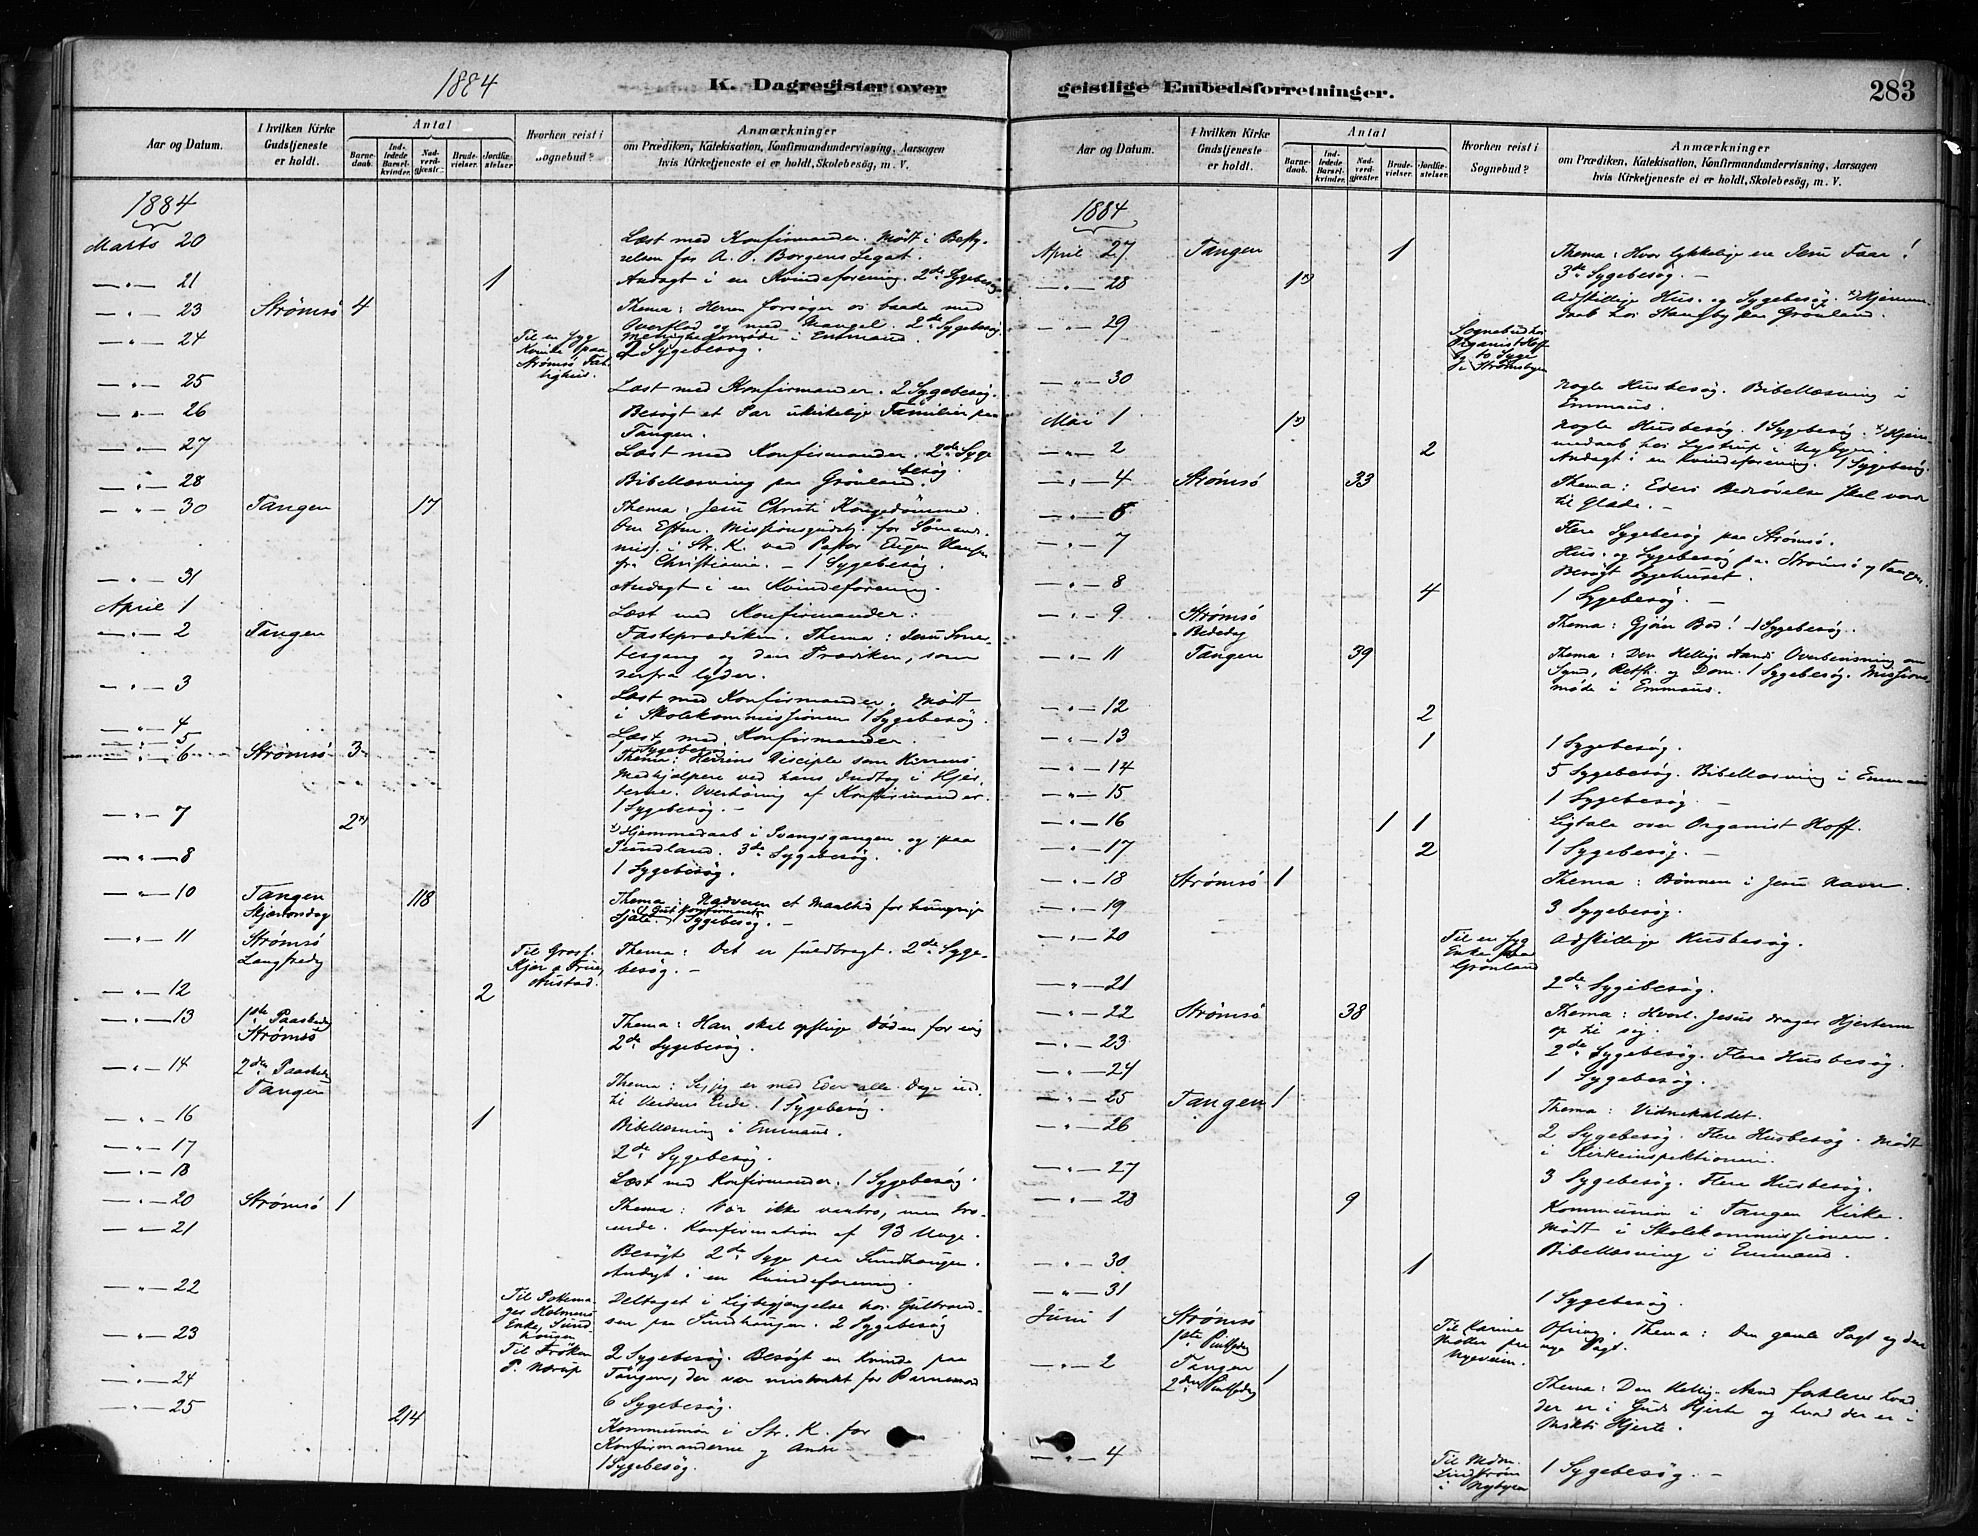 1884
K. Dagregister over
geistlige Embedsforretninger.
283
Aar og Datum.
I hvilken Kirke
Gudstjeneste
er holdt.
Antal
Barne-
daab.
Ind-
ledede
Barsel-
kvinder.
Nad-
verd-
gjæster.
Brude-
vielser.
Jordfæ-
stelser
Hvorhen reist i
Sognebud?
Anmærkninger
om Prædiken, Katekisation, Konfirmandundervisning, Aarsagen
hvis Kirketjeneste ei er holdt, Skolebesög, m. V.
1884
Marts 20
Læst med Konfirmander. Mödt i Besty-
relsen for A. O. Borgens Legat.
21 1 Andagt i en Kvindeforening. 2de Sygebesög
23 Strømsö 4 Thema: Herren forsöger os baade med
Overflod og med Mangel. 2de Sygebesög
24 Til en syg
Kvinde paa
Strömsö Fat-
tighus.
2 Sygebesög.
25 Læst med Konfirmander. 2 Sygebesög.
26 Besögt et Par ukirkelige Familier paa
Tangen.
27 Læst med Konfirmander. 2de Syge
besög.
28 Bibellæsning paa Grönland.
30 Tangen 17 Thema: Jesu Christi Kongedömme.
Om Efterm. Missionsgudstj. for Sömands
miss. i Str. K. ved Pastor Eugen Hansen
fra Christiania. — 1 Sygebesög.
31 Andagt i en Kvindeforening.
April 1 Læst med Konfirmander.
2 Tangen Fasteprædiken. Thema: Jesu Smer-
tesgang og den Prædiken, som
derfra lyder.
3 Læst med Konfirmander. Mödt
i Skolekommissionen 1 Sygebesög.
4 Læst med Konfirmander.
5 1 Sygebesög
6 Strømsö 3 Thema: Herrens Disciple som Herrens
Medhjælpere ved hans Indtog i Hjer-
terne. Overhöring af Konfirmander.
1 Sygebesög. —
7 2 x) x) Hjemmedaab i Svangsgangen og paa
Sundland. 3de Sygebesög.
8 1 Sygebesög.
10 Tangen
Skjærtorsdag
118 Thema: Nadveren et Maaltid for hungrige
Sjæle. 1 Sygebesög. —
11 Strømsö
Langfredag
Til Gross.
Kjær o Frue,
Austad.
Thema: Det er fuldbragt. 2de Syge-
besög. —
12 2
13 1ste Paaskedag
Strømsö
Thema: Han skal opsluge Döden for evig
2de Sygebesög.
14 2den Paaskedag
Tangen
Thema: Se, jeg er med Eder alle Dage ind-
til Verdens Ende. 1 Sygebesög.
16 1 Bibellæsning i Emmaus.
17 2de Sygebesög.
18 Læst med Konfirmander. 1 Sygebesög.
20 Strømsö 1 Thema: Vær ikke vantro, men tro-
ende. Konfirmation af 93 Unge.
21 Besögt 2de Syge paa Sundhaugen.
Andagt i en Kvindeforening.
22 Til Pottema-
ger Holmens
Enke, Sund-
haugen
Deltaget i Ligbegjængelse hos Gulbrand-
sen paa Sundhaugen. 2 Sygebesög
23 Til Fröken
P. Nörup
2 Sygebesög. Besögt en Kvinde paa
Tangen, der var mistænkt for Barnemord
24 6 Sygebesög.
25 214 Kommunion i Str. K. for
Konfirmanderne og Andre
1 Sygebesög.
Aar og Datum.
I hvilken Kirke
Gudstjeneste
er holdt.
Antal
Barne-
daab.
Ind-
ledede
Barsel-
kvinder.
Nad-
verd-
gjæster.
Brude-
vielser.
Jordfæ-
stelser.
Hvorhen reist i
Sognebud?
Anmærkninger
om Prædiken, Katekisation, Konfirmandundervisning, Aarsagen
hvis Kirketjeneste ei er holdt, Skolebesög, m. V.
1884
April 27 Tangen 1 Thema: Hvor lykkelige ere Jesu Faar!
3de Sygebesög. —
28 1 x) Adskillige Hus- og Sygebesög. x) Hjemme-
daab hos Hansby paa Grönland.
29 Sognebud hos
Organist Hoff
og to Syge
i Strömsbyen
30 Nogle Husbesög. Bibellæsning i
Emmaus.
Mai 1 1 x) Nogle Husbesög. 1 Sygebesög. x) Hjem-
medaab hos Lystrup i Nybyen.
2 2 Andagt i en Kvindeforening. 1 Sygebesög.
4 Strømsö 33 Thema: Eders Bedrövelse skal vorde
til Glæde. —
6 Flere Sygebesög paa Strömsö.
7 Hus- og Sygebesög paa Strömsö og Tangen.
Besögt Sygehuset.
8 4 1 Sygebesög. —
9 Strømsö
Bededag
Thema: Gjörer Bod! 1 Sygebesög.
11 Tangen 39 Thema: Den Hellig Aands Overbevisning om
Synd, Retf. og Dom. 1 Sygebesög. Missions
möde i Emmaus.
12 2
13 1 1 Sygebesög.
14 5 Sygebesög. Bibellæsning i Emmaus
15 1 Sygebesög. —
16 1 1 Ligtale over Organist Hoff.
17 2 1 Sygebesög. —
18 Strømsö 1 Thema: Bönnen i Jesu Navn.
19 3 Sygebesög.
20 Til en syg
Enke paa
Grönland
Adskillige Husbesög.
21 2de Sygebesög.
22 Strømsö 38 Thema: Hvorl. Jesus drager Hjerterne
op til sig.
23 2de Sygebesög. Flere Husbesög.
24 1 Sygebesög.
25 Tangen 1 Thema: Vidnekaldet.
26 2 Sygebesög. Flere Husbesög. Mödt
i Kirkeinspektionen.
27 3 Sygebesög. Flere Husbesög.
28 9 Kommunion i Tangen Kirke.
Mödt i Skolekommissionen.
Bibellæsning i Emmaus.
30 1
31 1 Sygebesög.
Juni 1 Strømsö
1ste Pintsedag
Til Karine
Möller paa
Nyeveien.
Ofring. Thema: Den gamle Pagt og den
nye Pagt.
2 Tangen
2den Pintsedag
1 Thema: Den Hellig-Aand forklarer hvad
der er i Guds Hjerte og hvad der er i
Hjerte.
4 Til Mdm.
Lindström
i Nybyen
1 Sygebesög. —